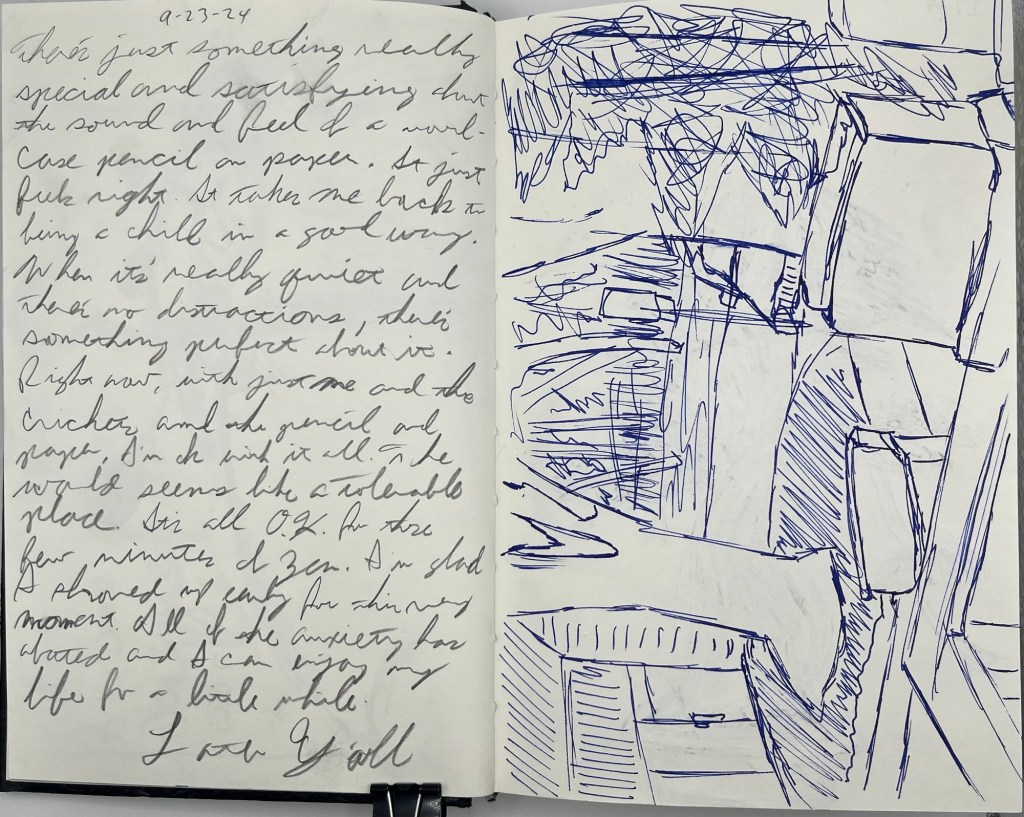 9-23-24
There's just something really
special and satisfying about
the sound and feel of a wood-
case pencil on paper. It just
feels right. It takes me back to
being a child in a good way.
When it's really quiet and
there's no distractions, there's
something perfect about it.
Right now, with just me and the
crickets and the pencil and
paper, I'm ok with it all. The
world seems like a tolerable
place. It's all O.K. for these
few minutes of Zen. I'm glad
I showed up early for this very
moment. All of the anxiety has
abated and I can enjoy my
life for a little while.
Later Y'all